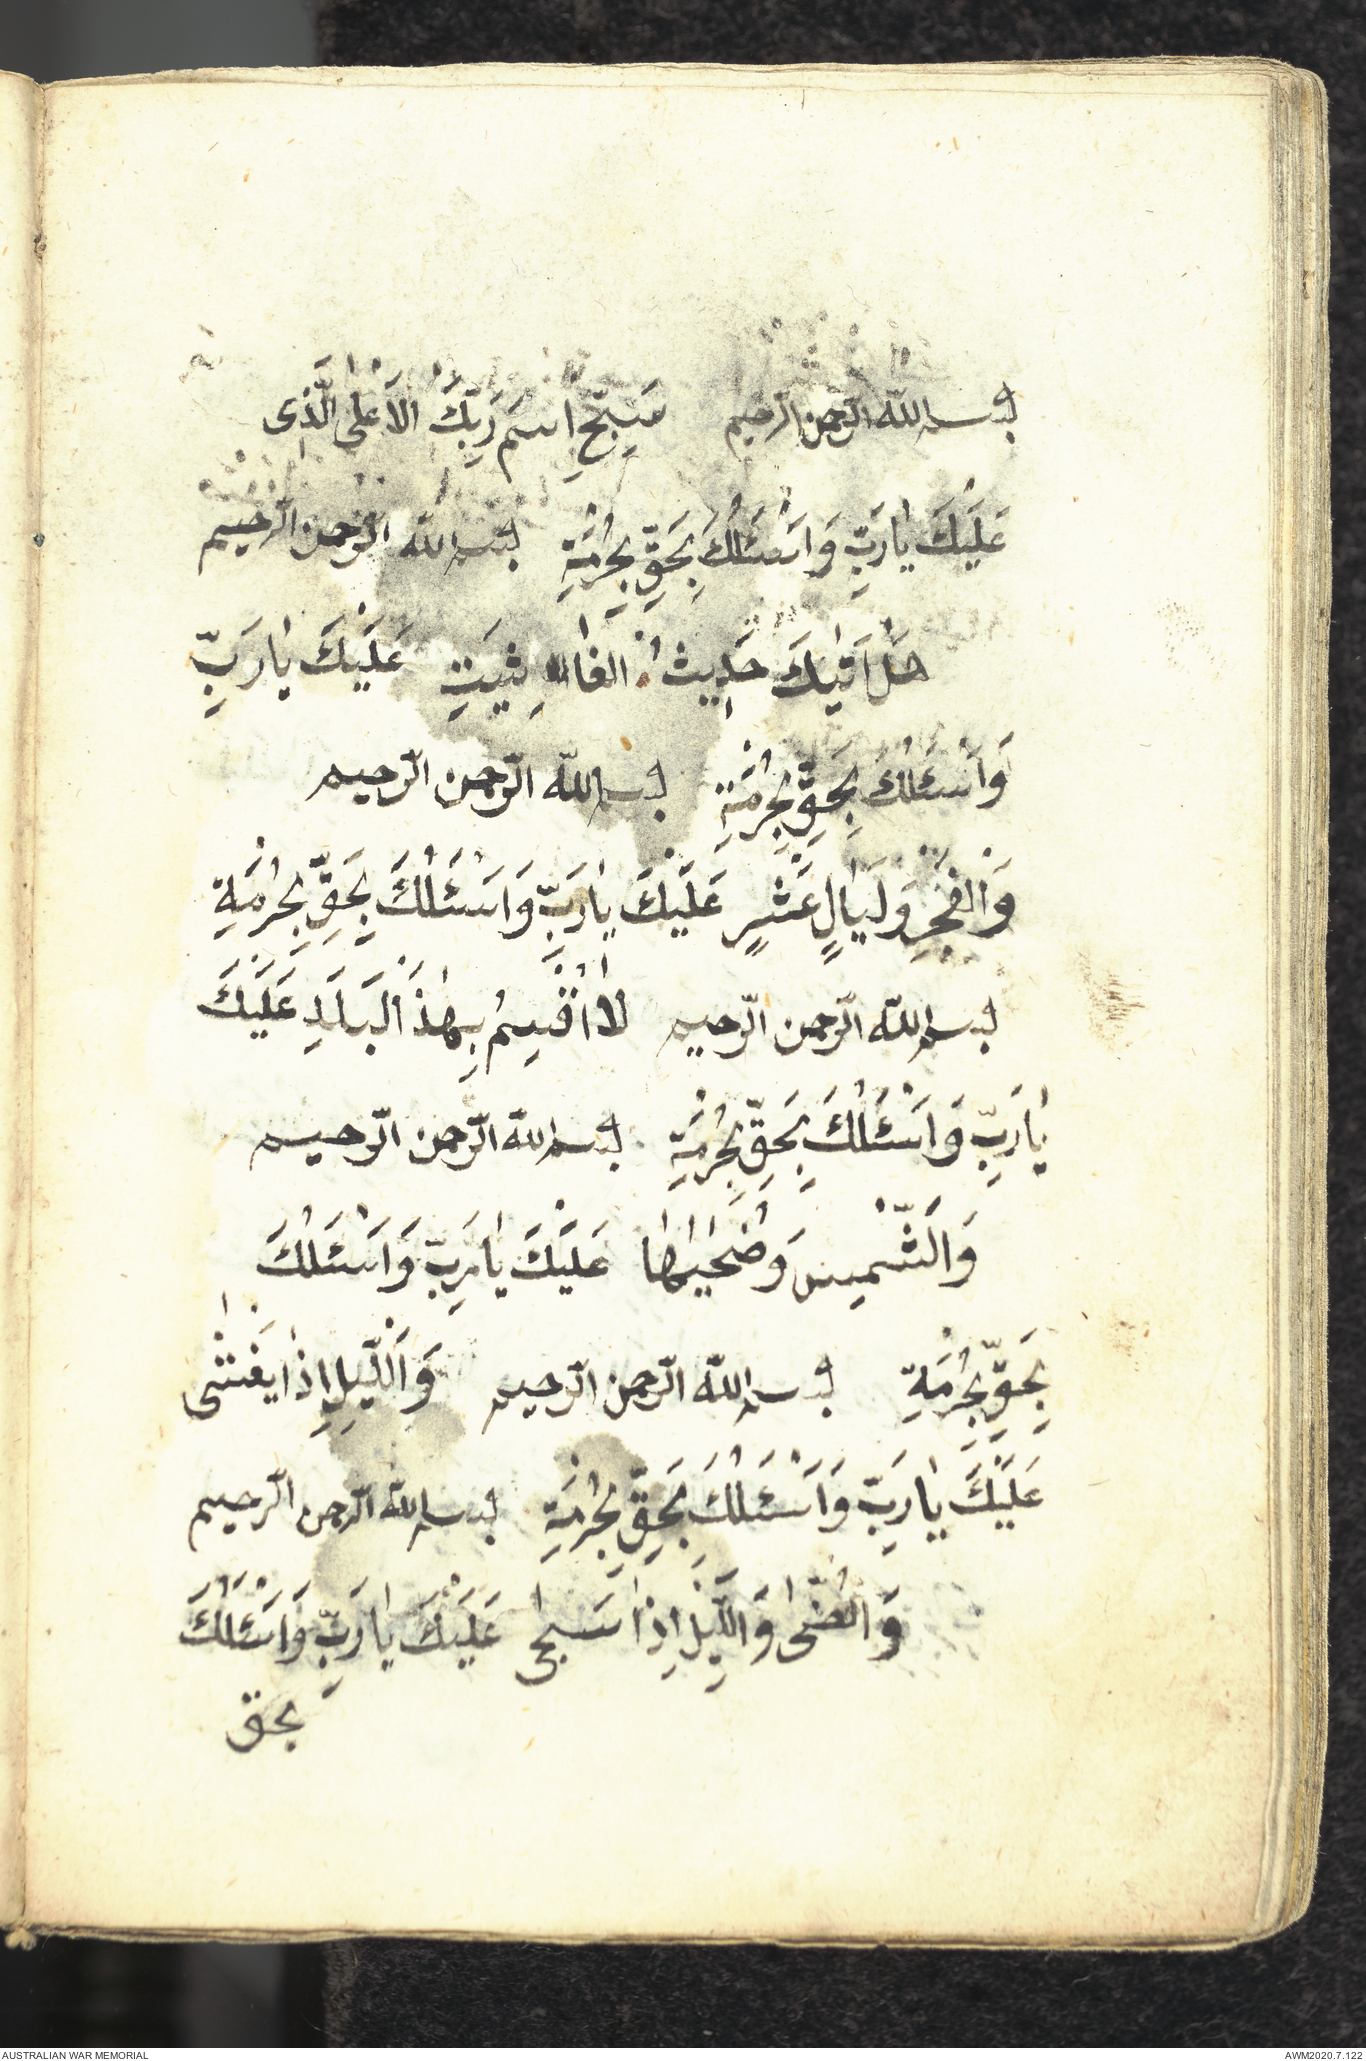 بسم الله الرحمن الرحيم سَبِّحِ اسْمَ رَبِّكَ الْاَعْلَى الَّذِى
عَلَيْكَ يَا رَبِّ وَاَسْئَلُكَ بِحَقِّ بِحُرْمَةِ بسم الله الرحمن الرحيم
هَلْ اَتٰيكَ حَدِيثُ الْغَا شِيَتِ عَلَيْكَ يَا رَبِّ
وَاَسْئَلُكَ بِحَقِّ بِحُرْمَةِ بسم الله الرّحمن الرّحيم
وَالْفَجْرِ وَلَيَالٍ عَشْرٍ عَلَيْكَ يَا رَبِّ وَاَسْئَلُكَ بِحَقِّ بِحُرْمَةِ
بسم الله الرّحمن الرّحيم لَا اُقْسِمُ بِهٰذَ الْبَلَدِ عَلَيْكَ
يَا رَبِّ وَاَسْئَلُكَ بِحَقِّ بِحُرْمَةِ بسم الله الرّحمن الرّحيم
وَالشَّمْسِ وَضُحٰيهَا عَلَيْكَ يَا رَبِّ وَاَسْئَلُكَ
بِحَقِّ بِحُرْمَةِ بسم الله الرّحمن الرّحيم وَالَّيْلِ اِذَا يَغْشٰى
عَلَيْكَ يَا رَبِّ وَاَسْئَلُكَ بِحَقِّ بِحُرْمَةِ بسم الله الرّحمن الرّحيم
وَالضُّحٰى وَالَّيْلِ اِذَا سَجٰى عَلَيْكَ يَا رَبِّ وَاَسْئَلُكَ
بحق
AUSTRALIAN WAR MEMORIAL AWM2020.7.122